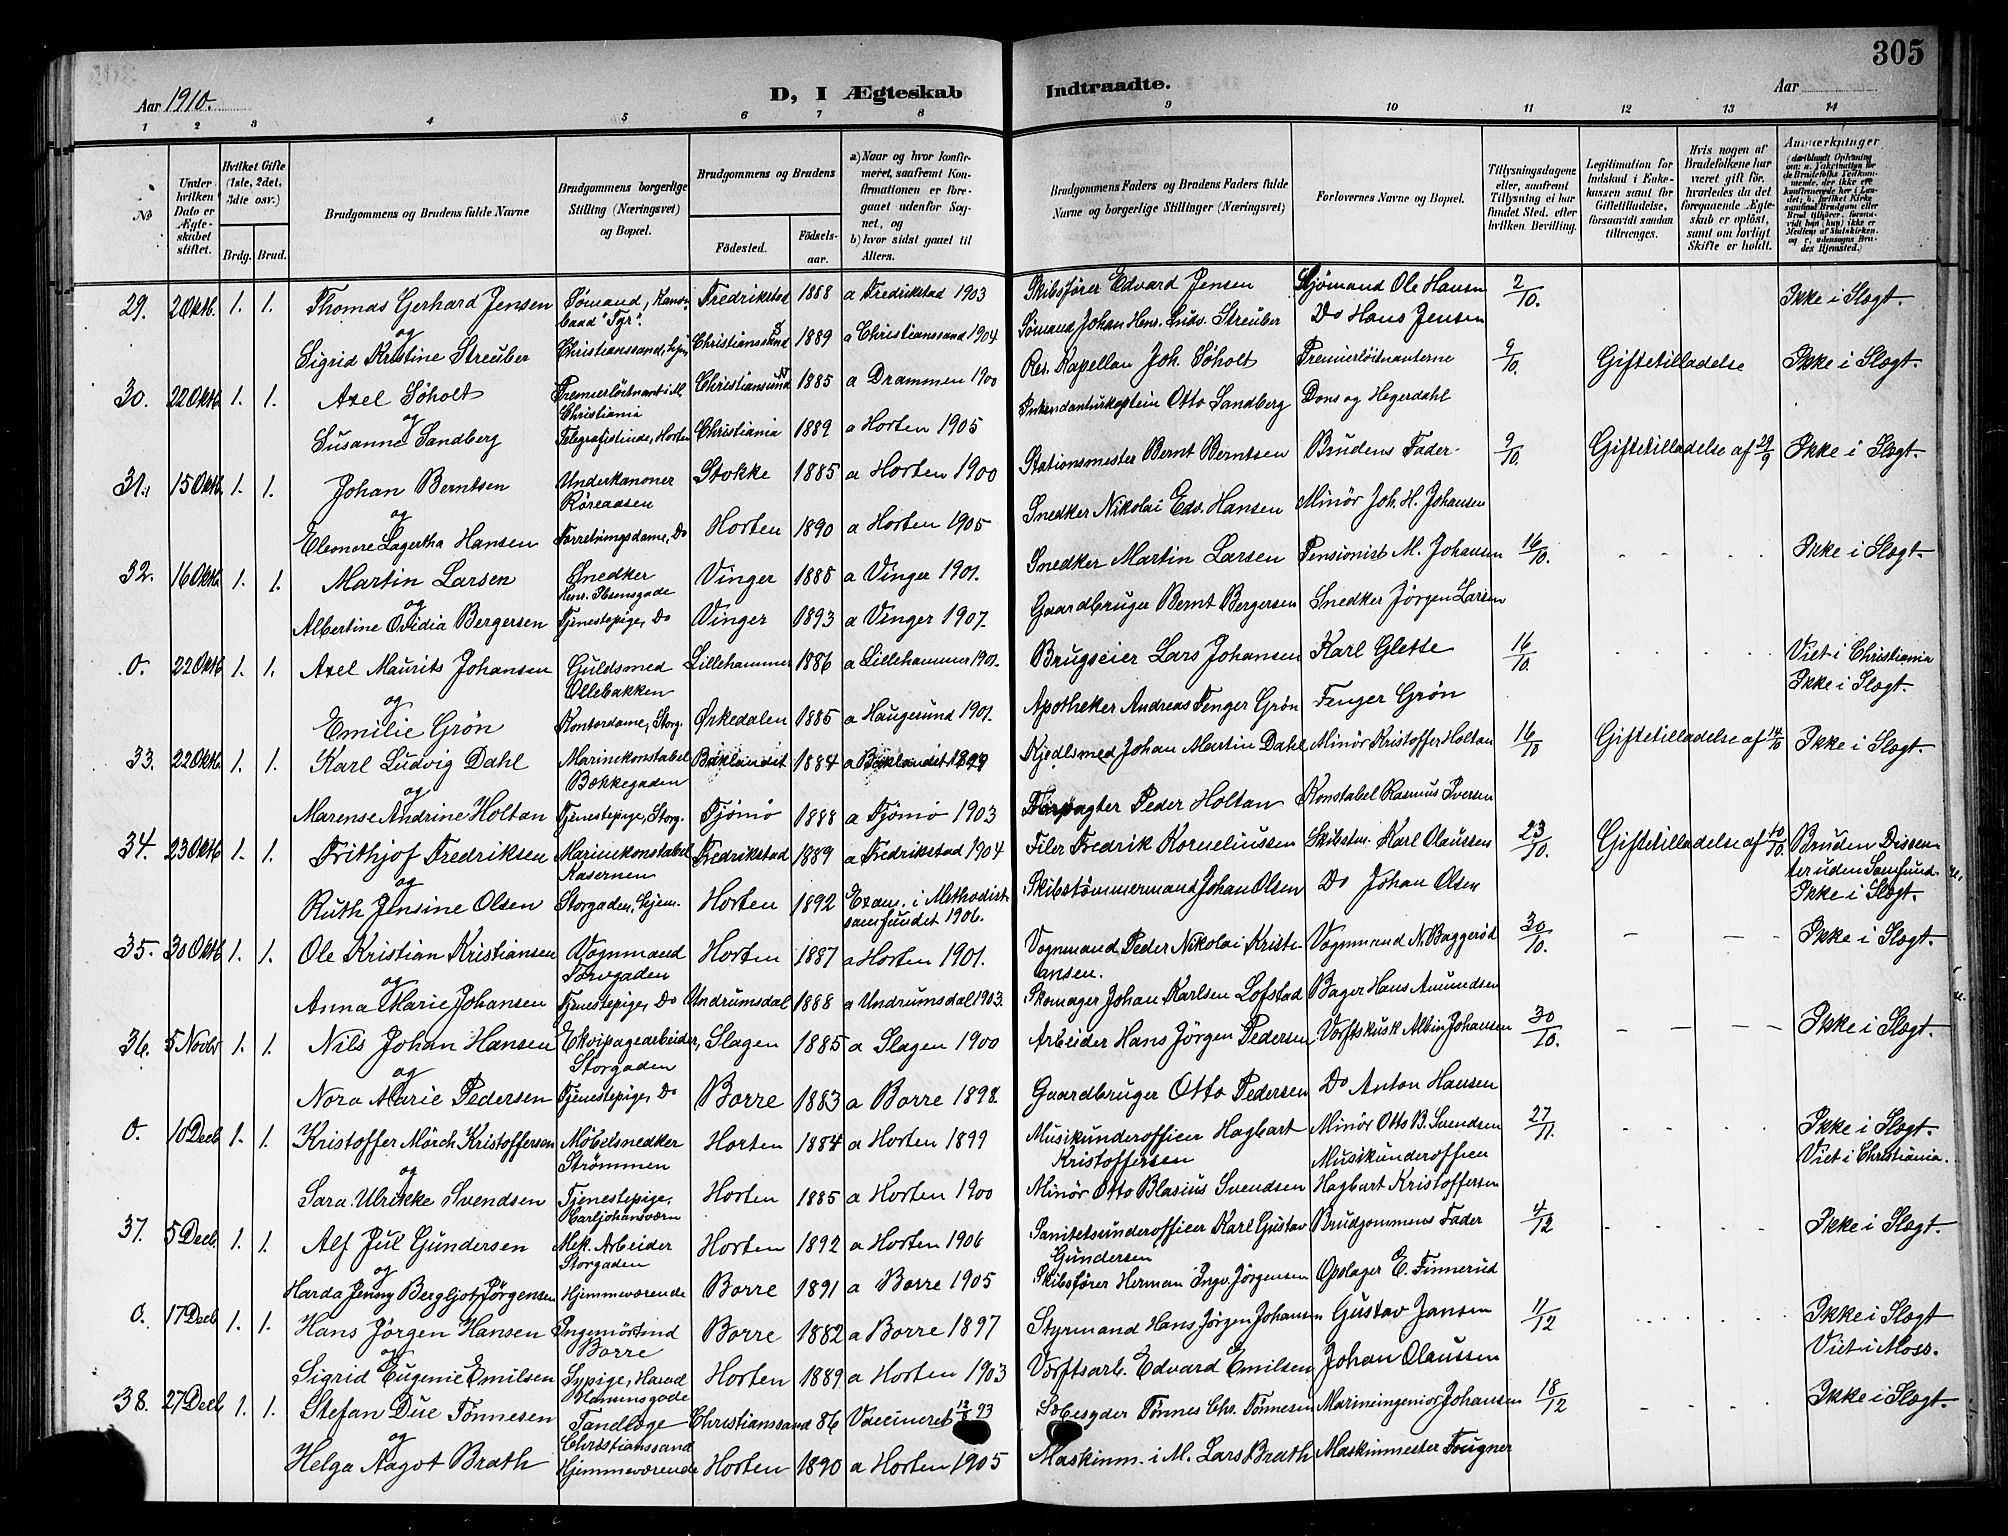 305
Aar 1910.
D, I Ægteskab Indtraadte.
Aar
1 2 3 4 5 6 7 8 9 10 11 12 13 14
No
Under hvilken Dato er Ægteskabet stiftet.
Hvilket Gifte (1ste, 2det, 3die osv.)
Brdg. Brud.
Brudgommens og Brudens fulde Navne
Brudgommens borgerlige Stilling (Næringsvei) og Bopæl.
Brudgommens og Brudens
Fødested.
Fødselsaar.
a) Naar og hvor konfirmeret, saafremt Konfirmationen er foregaaet udenfor Sognet, og
b) hvor sidst gaaet til Alters.
Brudgommens Faders og Brudens Faders fulde Navne og borgerlige Stillinger (Næringsvei)
Forlovernes Navne og Bopæl.
Tillysningsdagene eller, saafremt Tillysning ei har fundet Sted, efter hvilken Bevilling.
Legitimation for Indskud i Enkekassen samt for Giftetilladelse, forsaavidt saadan tiltrænges.
Hvis nogen af Brudefolkene har været gift før, hvorledes da det foregaaende Ægteskab er opløst, samt om lovligt Skifte er holdt.
Anmerkninger
29. 2 Oktb. 1. 1. Thomas Gerhard Jensen Sømand, Kanonbaad "Tyr". Fredrikstad 1888 a Fredrikstad 1903 Skibsfører Edvard Jensen Sjömand Ole Hansen 2/10. Ikke i Slægt.
og
Sigrid Kristine Streuber Christianssand, Hjem Christianssand 1889 a Christianssand 1904 Sømand Johan Hens. Ludv. Streuber Do Hans Jensen
30. 22 Oktb. 1. 1. Axel Söholt Premierlöitnant i M. Christiania Christiansund 1885 a Drammen 1900 Res. Kapellan Joh. Söholt Premierlöitnanterne 9/10. Giftetilladelse Ikke i Slægt.
og
Susanne Sandberg Telegrafistinde, Horten Christiania 1889 a Horten 1905 Intendanturkaptein Otto Sandberg Dons og Hegerdahl
31. 15 Oktb. 1. 1. Johan Berntsen Underkanoner Röreaasen Stokke 1885 a Horten 1900 Stationsmester Bernt Berntsen Brudens Fader 9/10. Giftetilladelse af 29/9 Ikke i Slægt.
og
Eleonore Lagertha Hansen Forretningsdame, Do Horten 1890 a Horten 1905 Snedker Nikolai Edv. Hansen Minör Joh. H. Johansen
32. 16 Oktb. 1. 1. Martin Larsen Snedker Henr. Ibsensgade Vinger 1885 a Vinger 1901. Snedker Martin Larsen Pensionist M. Johansen 16/10. Ikke i Slægt.
og
Albertine Ovidia Bergersen Tjenestepige, Do Vinger 1893 a Vinger 1907. Gaardbruger Bernt Bergersen Snedker Jörgen Larsen
0. 22 Oktb 1. 1. Axel Maurits Johansen Guldsmed Ollebakken Lillehammer 1886 a Lillehammer 1901. Brugseier Lars Johansen Karl Glette 16/10. Viet i Christiania Ikke i Slægt.
og
Emilie Grön Kontordame, Storg. Ørkedalen 1885 a Haugesund 1901. Apotheker Andreas Fenger Grön Fenger Grön
33. 22 Oktb 1. 1. Karl Ludvig Dahl Marinekonstabel Bækkegaden Baklandet 1884 a Baklandet 1899 Kjedlsmed Johan Martin Dahl Minör Kristoffer Holtan 16/10 Giftetilladelse af 14/10 Ikke i Slægt.
og
Marense Andrine Holtan Tjenestepige, Storg. Tjömö 1888 a Tjömö 1903 Forpagter Peder Holtan Konstabel Rasmus Iversen
34. 23 Oktb 1. 1. Frithjof Fredriksen Marinekonstabel Kasernen Fredrikstad 1889 a Fredrikstad 1904 Filer Fredrik Korneliussen Skibstm. Karl Olaussen 23/10. Giftetilladelse af 10/10. Bruden Dissenter uden Samfund. Ikke i Slægt.
og
Ruth Jensine Olsen Storgaden, Hjem. Horten 1892 Exam. i Methodistsamfundet 1906. Skibstömmermand Johan Olsen Do Johan Olsen
35. 30 Oktb 1. 1. Ole Kristian Kristiansen Vognmand Torvgaden Horten 1887 a Horten 1901. Vognmand Peder Nikolai Kristiansen. Vognmand N. Baggeröd 30/10. Ikke i Slægt.
og
Anna Marie Johansen Tjenestepige, Do Undrumsdal 1888 a Undrumsdal 1903. Skomager Johan Karlsen Lofstad Bager Hans Amundsen
36. 5 Novbr 1. 1. Nils Johan Hansen Ekvipagearbeider, Storgaden Slagen 1885 a Slagen 1900 Arbeider Hans Jörgen Pedersen Værftskusk Albin Johansen 30/10. Ikke i Slægt.
og
Nora Marie Pedersen Tjenestepige, Do Borre 1883 a Borre 1898. Gaardbruger Otto Pedersen Do Anton Hansen
0. 10 Decb 1. 1. Kristoffer Mörch Kristoffersen Möbelsnedker Strömmen Horten 1884 a Horten 1899 Musikunderofficer Hagbart Kristoffersen Minör Otto B. Svendsen 27/11. Ikke i Slægt. Viet i Christiania.
og
Sara Ulrikke Svendsen Tjenestepige, Carljohansværn Horten 1885 a Horten 1900 Minör Otto Blasius Svendsen Musikunderofficer Hagbart Kristoffersen
37. 5 Decb. 1. 1. Alf Jul Gundersen Mek. Arbeider Storgaden Horten 1892 a Horten 1906 Sanitetsunderofficer Karl Gustav Gundersen Brudgommens Fader 4/12 Ikke i Slægt.
og
Harda Jenny Bergljot Jørgensen Hjemmeværende Borre 1891 a Borre 1905 Skibsfører Herman Ingv. Jörgensen Opslager E. Finnerud
0. 17 Decb 1. 1. Hans Jörgen Hansen Borre Borre 1882 a Borre 1897 Styrmand Hans Jörgen Johansen Gustav Jansen 11/12 Ikke i Slægt Viet i Moss.
og
Sigrid Eugenie Emilsen Sypige, Harald Horten 1889 a Horten 1903 Værftsarb. Edvard Emilsen Johan Olaussen
38. 27 Decb 1. 1. Stefan Due Tönnesen Tandlæge Christianssand Christianssand 86 Vaccineret 12/8 93 Tönnes Chr. Tönnesen Marineingeniör Johansen 18/12 Ikke i Slægt.
og
Helga Aagot Brath Hjemmeværende Horten 1890 a Horten 1905 Maskinm. i M. Lars Brath Maskinmester Fougner